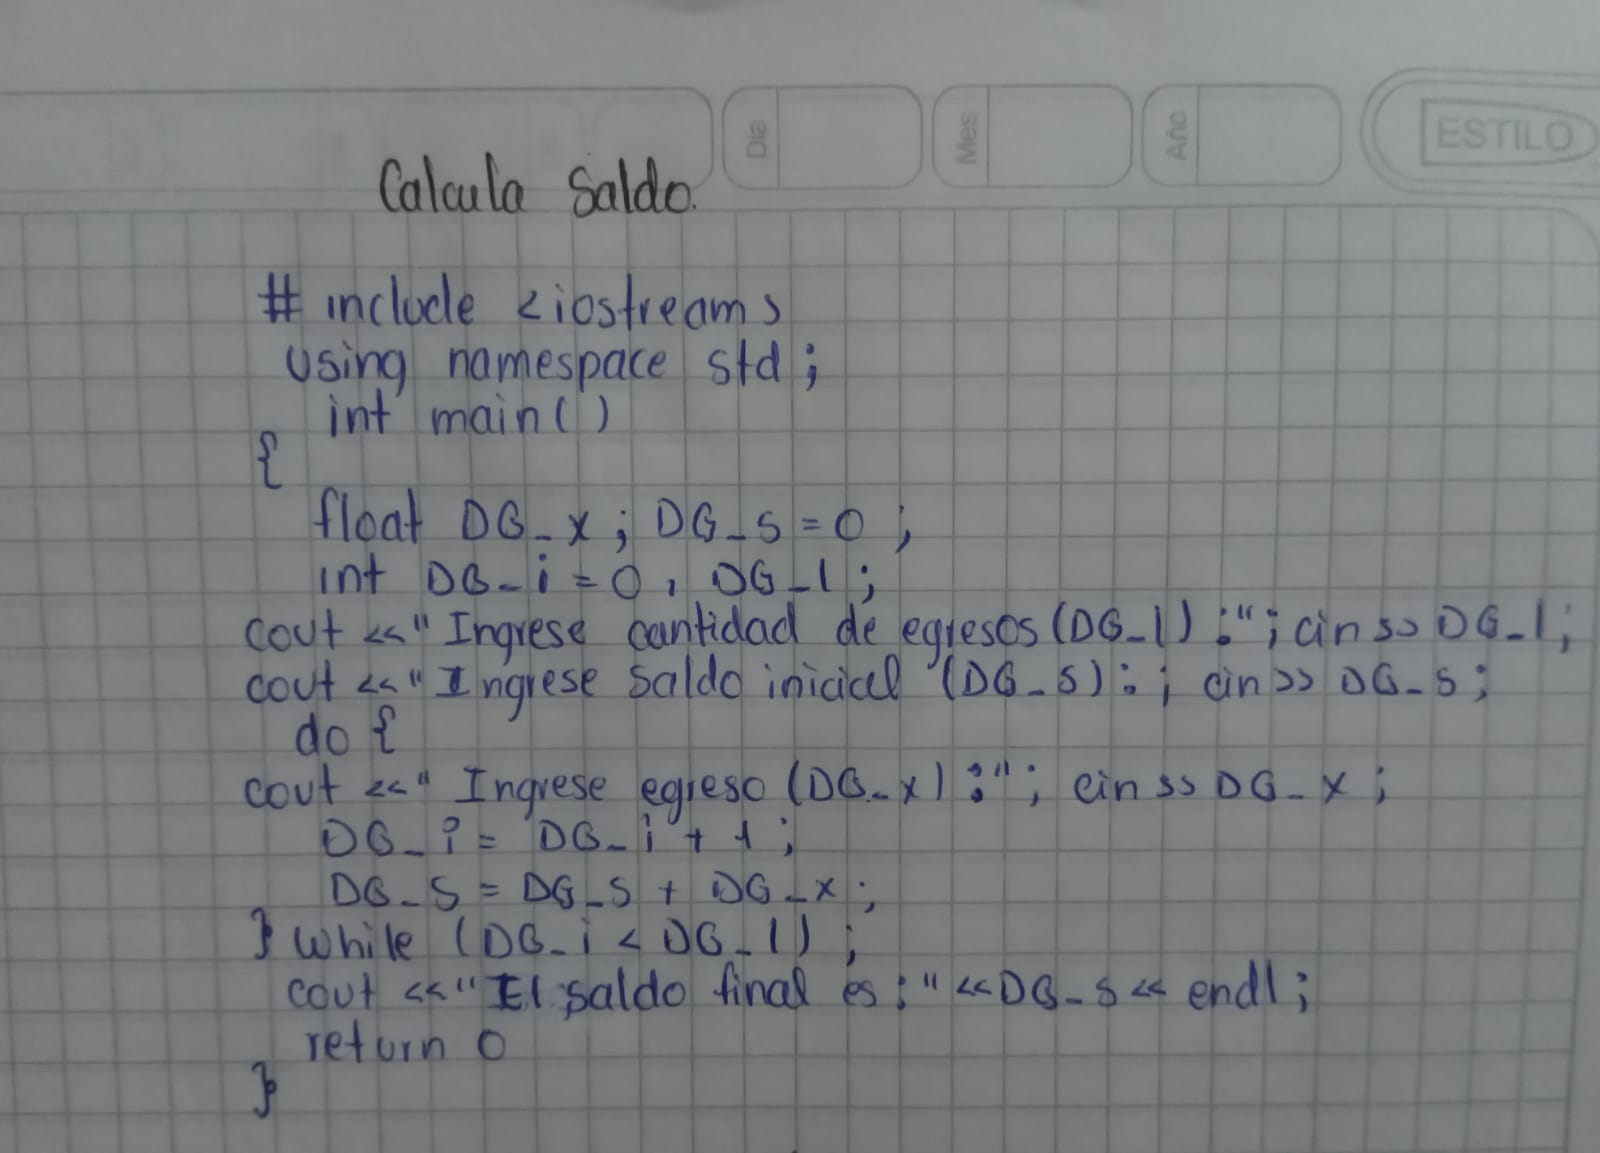 Día
Mes
Año
ESTILO
Calcula Saldo.
# include <iostream>
using namespace std ;
int main()
{
float DG_x ; DG_s = 0 ;
int DG_i = 0 , DG_l ;
cout <<" Ingrese cantidad de egresos (DG_l) :" ; cin >> DG_l ;
cout <<" Ingrese saldo inicial (DG_s) : ; cin >> DG_s ;
do {
cout <<" Ingrese egreso (DG_x) :" ; cin >> DG_x ;
DG_i = DG_i + 1 ;
DG_s = DG_s + DG_x ;
} while (DG_i < DG_l) ;
cout <<" El saldo final es :" << DG_s << endl ;
return 0
}